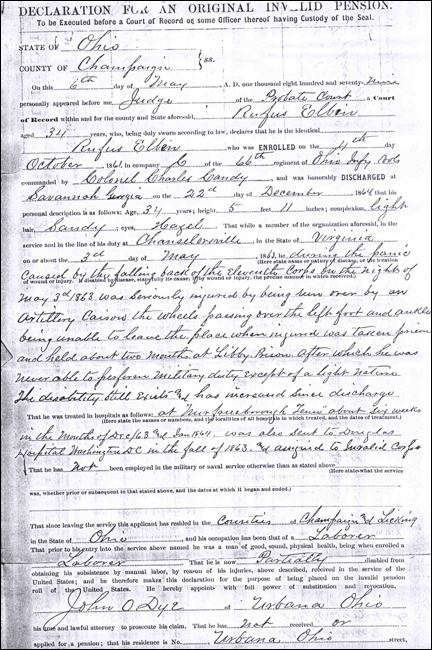 DECLARATION FOR AN ORIGINAL INVALID PENSION.
To be Executed before a Court of Record or some Officer thereof having Custody of the Seal.
STATE OF Ohio
COUNTY OF Champaign } SS.
On this 6th day of May A. D. one thousand eight hundred and seventy-nine
personally appeared before me Judge of the Probate Court a Court
of Record within and for the county and State aforesaid, Rufus Elben
aged 34 years, who, being duly sworn according to law, declares that he is the identical
Rufus Elben who was ENROLLED on the 4th day
October 1861, in company C of the 66th regiment of Ohio Infy Vols
commanded by Colonel Charles Candy and was honorably DISCHARGED at
Savannah Georgia on the 22d day of December 1864 that his
personal description is as follows: Age, 34 years; height, 5 feet 11 inches; complexion, light
hair, Sandy; eyes, Hazel. That while a member of the organization aforesaid, in the
service and in the line of his duty at Chanselorville in the State of Virginia
on or about the 3d day of May 1863, he during the panic
(Here state name or nature of disease, or the location
Caused by the falling back of the Eleventh Corps on the night of
of wound or injury. If disabled by disease, state fully its cause; if by wound or injury, the precise manner in which received.)
May 3d 1863 was Seriously injured by being run over by an
Artillery Caison the wheels passing over the left foot and ankle
being unable to leave the place when injured was taken prison
and held about two months at Libby Prison. After which he was
never able to perform Military duty Except of a light Nature
The disability Still Exists &d has increased Since discharge
That he was treated in hospitals as follows: at Murfreesborough Tenne about Six weeks
(Here state the names or numbers, and the localities of all hospitals in which treated, and the dates of treatment.)
in the Months of Dec/63 &d Jan 1864. was also sent to Douglas
Hospital Washington DC in the fall of 1863. &d assigned to Invalid Corps
That he has not been employed in the military or naval service otherwise than as stated above
(Here state what the service
was, whether prior or subsequent to that stated above, and the dates at which it began and ended.)
That since leaving the service this applicant has resided in the Counties of Champaign &d Licking
in the State of Ohio and his occupation has been that of a Laborer
That prior to his entry into the service above named he was a man of good, sound, physical health, being when enrolled a
Laborer That he is now Partially disabled from
obtaining his subsistence by manual labor, by reason of his injuries, above described, received in the service of the
United States; and he therefore makes this declaration for the purpose of being placed on the invalid pension
roll of the United States. He hereby appoints with full power of substitution and revocation,
John O Dye of Urbana Ohio
his true and lawful attorney to prosecute his claim. That he has not received or
applied for a pension; that his residence is No. Urbana Ohio street,